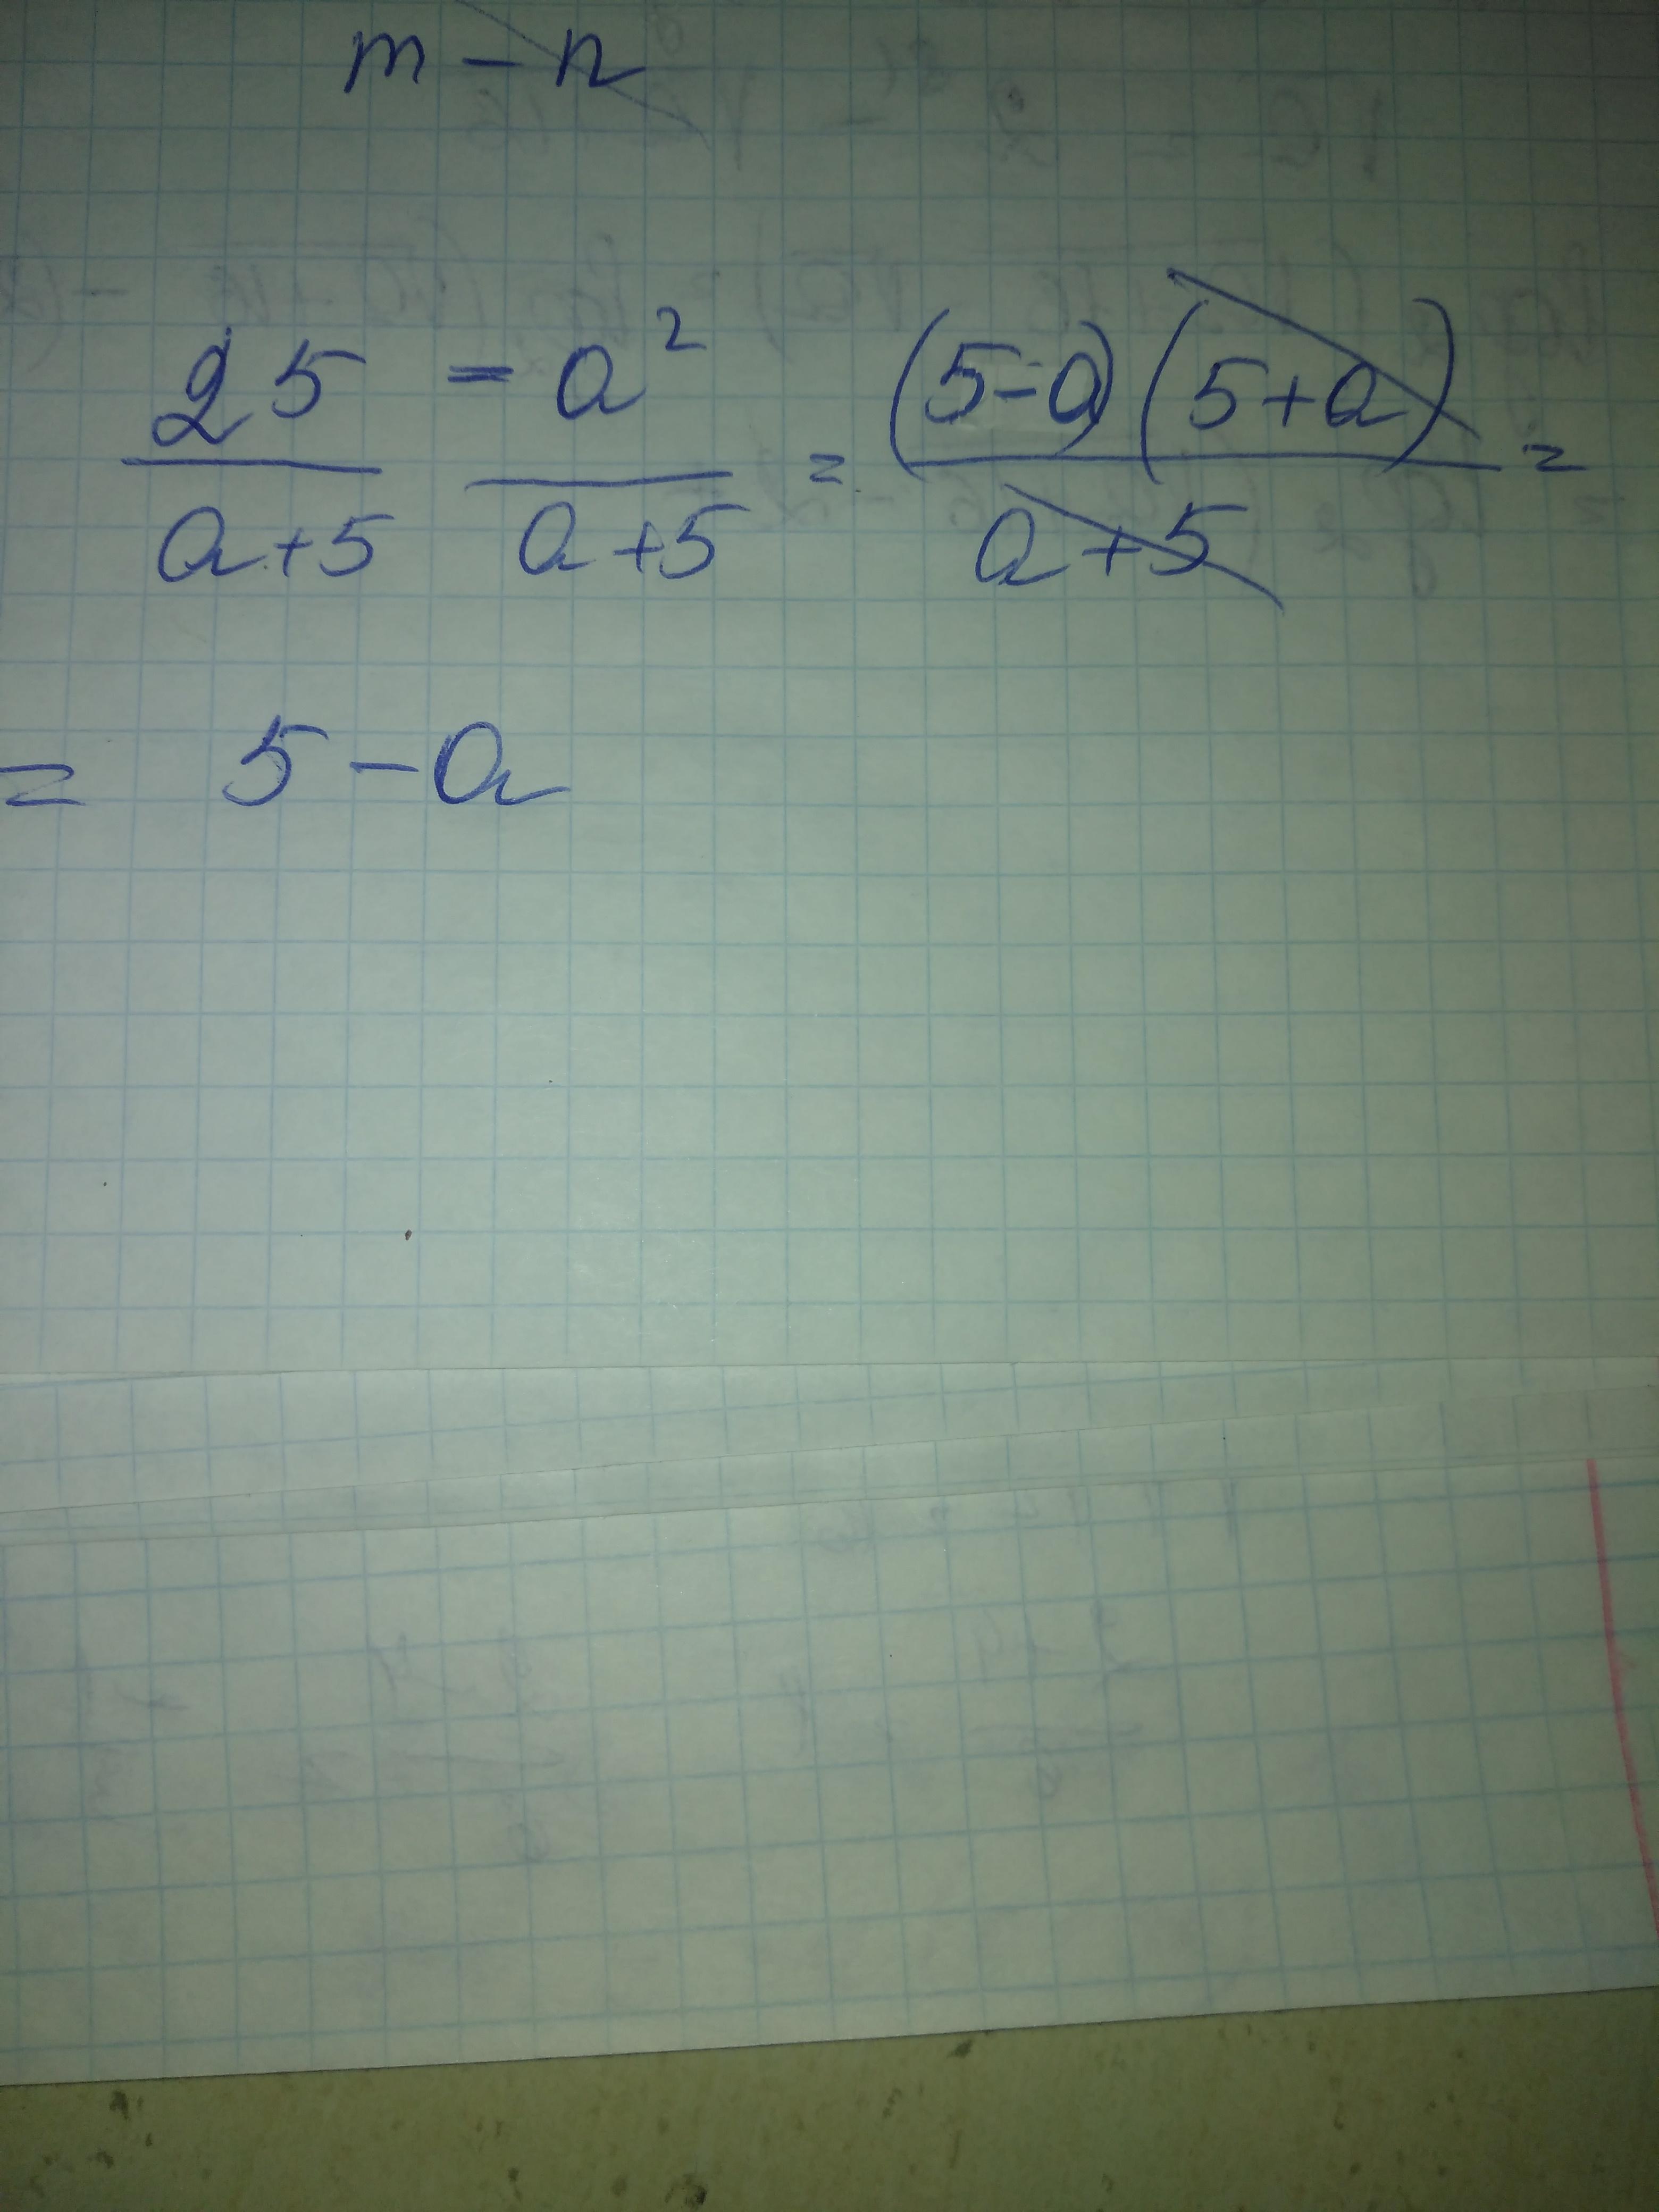 m - n
25/(a+5) - a²/(a+5) = (5-a)(5+a)/(a+5) =
= 5 - a